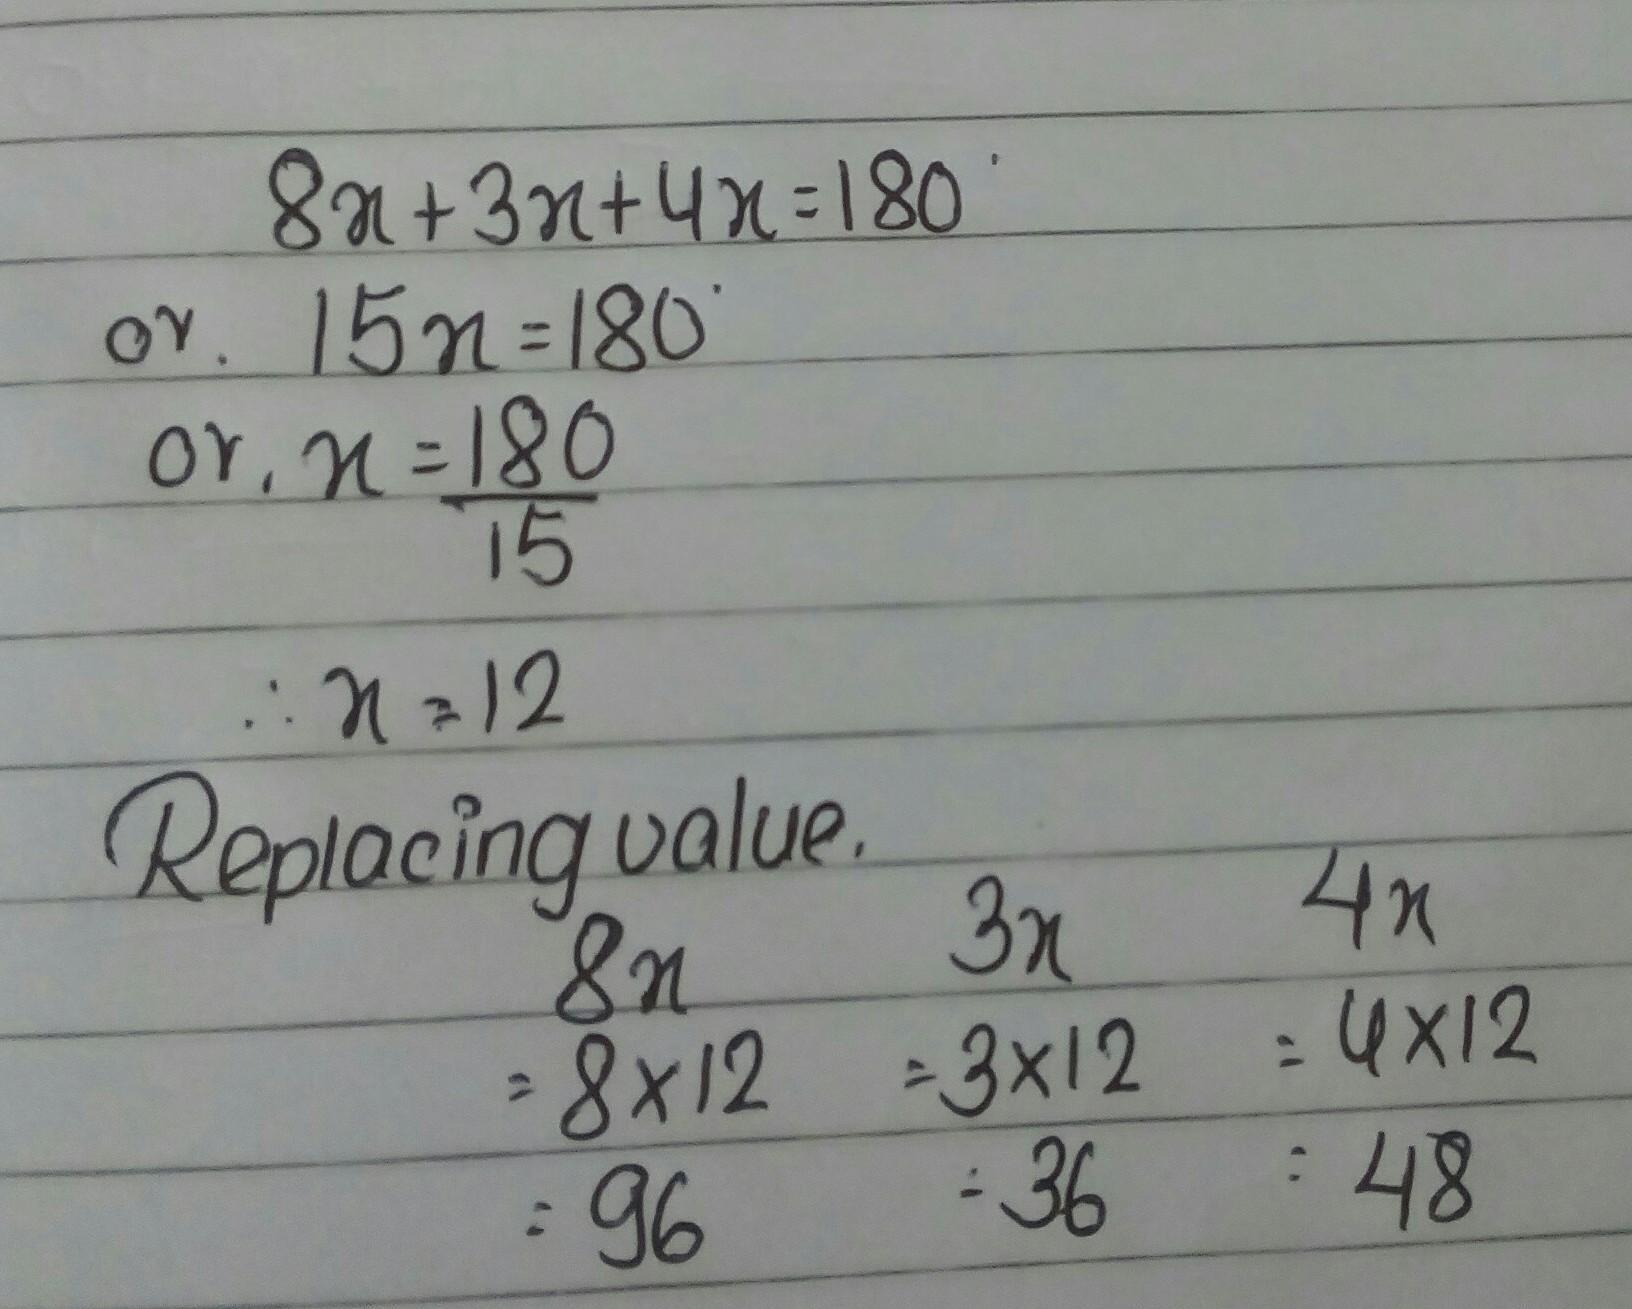 8x+3x+4x=180°
or. 15x=180°
or, x=180
15
∴ x=12
Replacing value.
8x 3x 4x
=8×12 =3×12 =4×12
=96 =36 =48